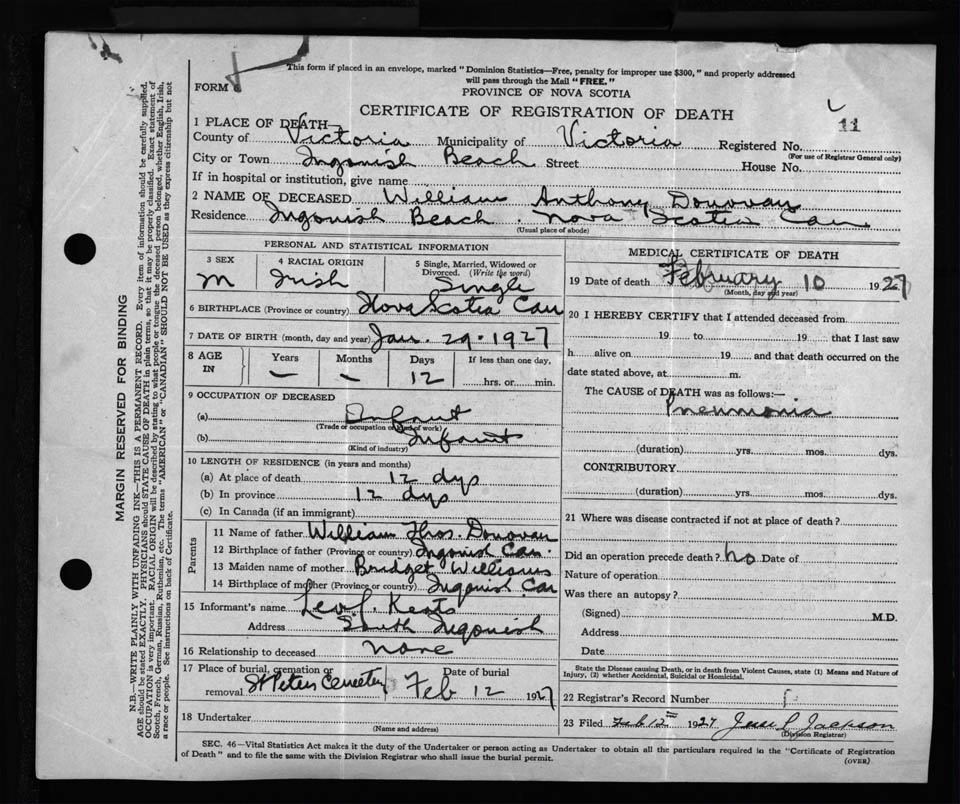 This form if placed in an envelope, marked "Dominion Statistics—Free, penalty for improper use $300," and properly addressed
will pass through the Mail "FREE."
FORM
PROVINCE OF NOVA SCOTIA
CERTIFICATE OF REGISTRATION OF DEATH
11
1 PLACE OF DEATH—
County of Victoria Municipality of Victoria Registered No.
(For use of Registrar General only)
City or Town Ingonish Beach Street House No.
If in hospital or institution, give name
2 NAME OF DECEASED William Anthony Donovan
Residence Ingonish Beach. Nova Scotia Can
(Usual place of abode)
PERSONAL AND STATISTICAL INFORMATION
3 SEX 4 RACIAL ORIGIN 5 Single, Married, Widowed or Divorced. (Write the word)
M Irish Single
6 BIRTHPLACE (Province or country) Nova Scotia Can
7 DATE OF BIRTH (month, day and year) Jan. 29. 1927
8 AGE IN Years Months Days If less than one day,
— — 12 hrs. or min.
9 OCCUPATION OF DECEASED
(a) Infant
(Trade or occupation or kind of work)
(b) Infant
(Kind of industry)
10 LENGTH OF RESIDENCE (in years and months)
(a) At place of death 12 dys
(b) In province 12 dys
(c) In Canada (if an immigrant)
Parents
11 Name of father William Thos. Donovan
12 Birthplace of father (Province or country) Ingonish Can.
13 Maiden name of mother Bridget Williams
14 Birthplace of mother (Province or country) Ingonish Can
15 Informant's name Keats
Address South Ingonish
16 Relationship to deceased None
17 Place of burial, cremation or removal St Peters Cemetery Date of burial Feb 12 1927
18 Undertaker
(Name and address)
MEDICAL CERTIFICATE OF DEATH
19 Date of death February 10 1927
(Month, day and year)
20 I HEREBY CERTIFY that I attended deceased from
19 to 19 that I last saw
h alive on 19 and that death occurred on the
date stated above, at m.
The CAUSE of DEATH was as follows:—
Pneumonia
(duration) yrs. mos. dys.
CONTRIBUTORY
(duration) yrs. mos. dys.
21 Where was disease contracted if not at place of death?
Did an operation precede death? no Date of
Nature of operation
Was there an autopsy?
(Signed) M.D.
Address
Date
State the Disease causing Death, or in death from Violent Causes, state (1) Means and Nature of
Injury, (2) whether Accidental, Suicidal or Homicidal.
22 Registrar's Record Number
23 Filed Feb 12th 1927 Jesse L Jackson
(Division Registrar)
SEC. 46—Vital Statistics Act makes it the duty of the Undertaker or person acting as Undertaker to obtain all the particulars required in the "Certificate of Registration
of Death" and to file the same with the Division Registrar who shall issue the burial permit.
(OVER)
MARGIN RESERVED FOR BINDING
N.B.—WRITE PLAINLY WITH UNFADING INK—THIS IS A PERMANENT RECORD. Every item of information should be carefully supplied.
AGE should be stated EXACTLY. PHYSICIANS should STATE CAUSE OF DEATH in plain terms, so that it may be properly classified. Exact statement of
OCCUPATION is very important. RACIAL ORIGIN will be described by stating to what people or tongue the deceased person belonged, whether English, Irish,
Scotch, French, German, Russian, Ruthenian, etc. The terms "AMERICAN" or "CANADIAN" SHOULD NOT BE USED as they express citizenship but not
a race or people. See instructions on back of Certificate.